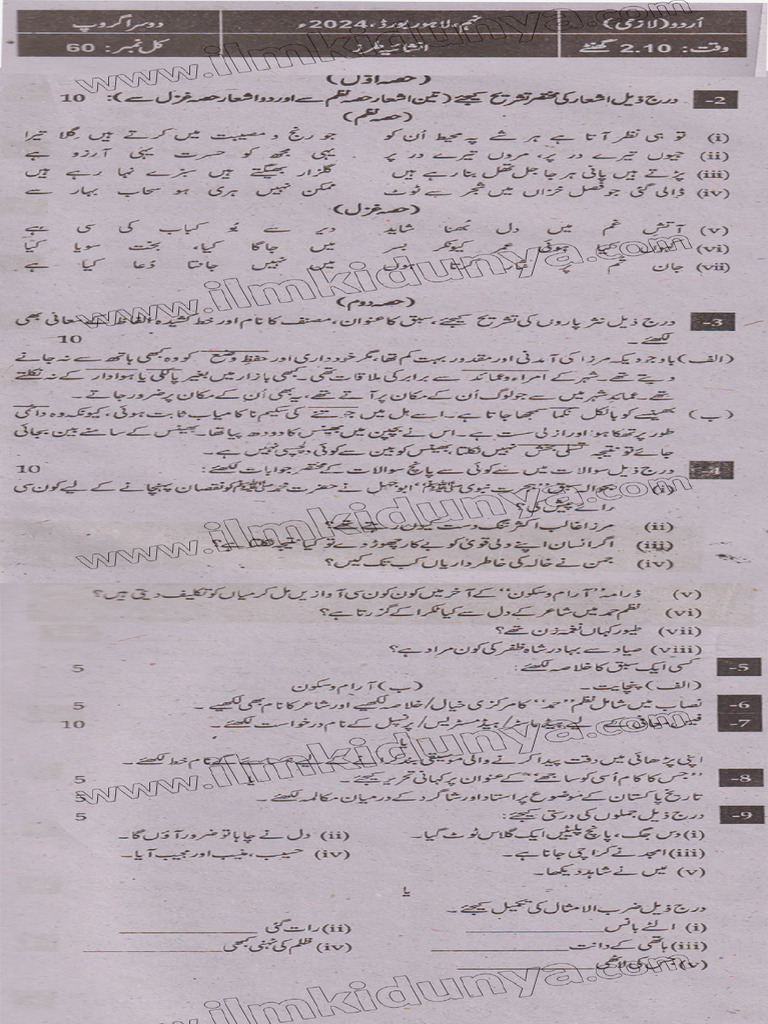 اردو (لازمی) نہم، لاہور بورڈ، 2024ء دوسرا گروپ
وقت: 2.10 گھنٹے انشائیہ طرز کل نمبر: 60
www.ilmkidunya.com
(حصہ اوّل)
2- درج ذیل اشعار کی مختصر تشریح کیجئے (تین اشعار حصہ نظم سے اور دو اشعار حصہ غزل سے): 10
(حصہ نظم)
(i) تو ہی نظر آتا ہے ہر شے پہ محیط اُن کو جو رنج و مصیبت میں کرتے ہیں گلا تیرا
(ii) جیوں تیرے در پر، مروں تیرے در پر یہی مجھ کو حسرت یہی آرزو ہے
(iii) پڑتے ہیں پانی ہر جا جل تھل بنا رہے ہیں گلزار بھیگتے ہیں سبزے نہا رہے ہیں
(iv) ڈالی گئی جو فصل خزاں میں شجر سے ٹوٹ ممکن نہیں ہری ہو سحاب بہار سے
(حصہ غزل)
(v) آتش غم میں دل بُھنا شاید دیر سے بُو کباب کی سی ہے
(vi) ہوئی عمر کیونکر بسر میں جاگا کیا، بخت سویا کیا
(vii) جان تم پر ہوں میں نہیں جانتا دُعا کیا ہے
www.ilmkidunya.com
(حصہ دوم)
3- درج ذیل نثر پاروں کی تشریح کیجئے، سبق کا عنوان، مصنف کا نام اور خط کشیدہ الفاظ کے معانی بھی
لکھئے۔ 10
(الف) باوجودیکہ مرزا کی آمدنی اور مقدور بہت کم تھا، مگر خودداری اور حفظِ وضع کو وہ کبھی ہاتھ سے نہ جانے
دیتے تھے۔ شہر کے امراء و عمائد سے برابر کی ملاقات تھی۔ کبھی بازار میں بغیر پالکی یا ہوادار کے نہ نکلتے
تھے۔ عمائدِ شہر میں سے جو لوگ اُن کے مکان پر آتے تھے، یہ بھی اُن کے مکان پر ضرور جاتے۔
(ب) بھینسے کو بالکل نکما سمجھا جاتا ہے۔ اسے ہل میں جوتنے کی سکیم ناکامیاب ثابت ہوئی، کیونکہ وہ دائمی
طور پر تھکا ہوا اور ازلی سست ہے۔ اس نے بچپن میں بھینس کا دودھ پیا تھا۔ بھینس کے سامنے بین بجائی
جائے تو نتیجہ تسلی بخش نہیں نکلتا بھینس کو بین سے کوئی دلچسپی نہیں ہے۔
4- درج ذیل سوالات میں سے کوئی سے پانچ سوالات کے مختصر جوابات لکھئے: 10
(i) بحوالہ سبق "ہجرت نبوی ﷺ" ابوجہل نے حضرت محمد ﷺ کو نقصان پہنچانے کے لیے کون سی
رائے پیش کی؟
(ii) مرزا غالب اکثر تنگ دست کیوں رہتے تھے؟
(iii) اگر انسان اپنے دلی قویٰ کو بے کار چھوڑ دے تو کیا نتیجہ نکلتا ہے؟
(iv) جمن نے خالہ کی خاطر داریاں کب تک کیں؟
www.ilmkidunya.com
(v) ڈرامہ "آرام و سکون" کے آخر میں کون کون سی آوازیں مل کر میاں کو تکلیف دیتی ہیں؟
(vi) نظم حمد میں شاعر کے دل سے کیا ٹکرا کے گزرتا ہے؟
(vii) طیور کہاں نغمہ زن تھے؟
(viii) صیاد سے بہادر شاہ ظفر کی کون مراد ہے؟
5- کسی ایک سبق کا خلاصہ لکھئے: 5
(الف) پنچایت۔ (ب) آرام و سکون
6- نصاب میں شامل نظم "حمد" کا مرکزی خیال/خلاصہ لکھیے اور شاعر کا نام بھی لکھیے۔ 5
7- فیس معافی کے لیے ہیڈ ماسٹر/ہیڈ مسٹریس/پرنسپل کے نام درخواست لکھئے۔ 10
یا
اپنی پڑھائی میں دقت پیدا کرنے والی موسیقی بند کے نام خط لکھئے۔
8- "جس کا کام اُسی کو ساجھے" کے عنوان پر کہانی تحریر کیجئے۔ 5
تاریخ پاکستان کے موضوع پر استاد اور شاگرد کے درمیان مکالمہ لکھئے۔ 5
www.ilmkidunya.com
9- درج ذیل جملوں کی درستی کیجئے: 5
(i) دس جگ، پانچ پلیٹیں ایک گلاس ٹوٹ گیا۔ (ii) دل نے چاہا تو ضرور آؤں گا۔
(iii) امجد نے کراچی جانا ہے۔ (iv) حسیب، منیب اور مجیب آیا۔
(v) میں نے شاہد دیکھا۔
یا
درج ذیل ضرب الامثال کی تکمیل کیجئے۔
(i) الٹے بانس (ii) رات گئی
(iii) ہاتھی کے دانت (iv) ظلم کی ٹہنی کبھی
(v) جس کی لاٹھی
www.ilmkidunya.com